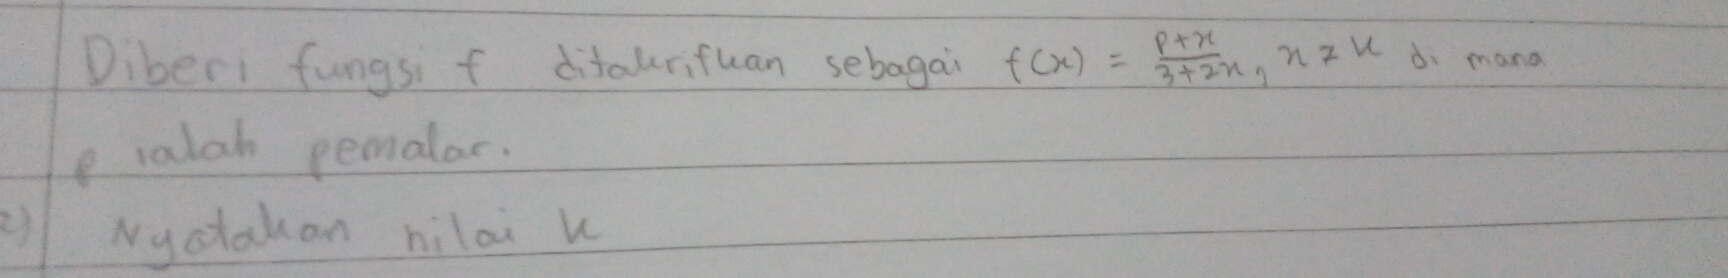 Diberi fungsi f ditakrifkan sebagai f(x) = \frac{p+x}{3+2x}, x ≠ k di mana
p ialah pemalar.
a) Nyatakan nilai k